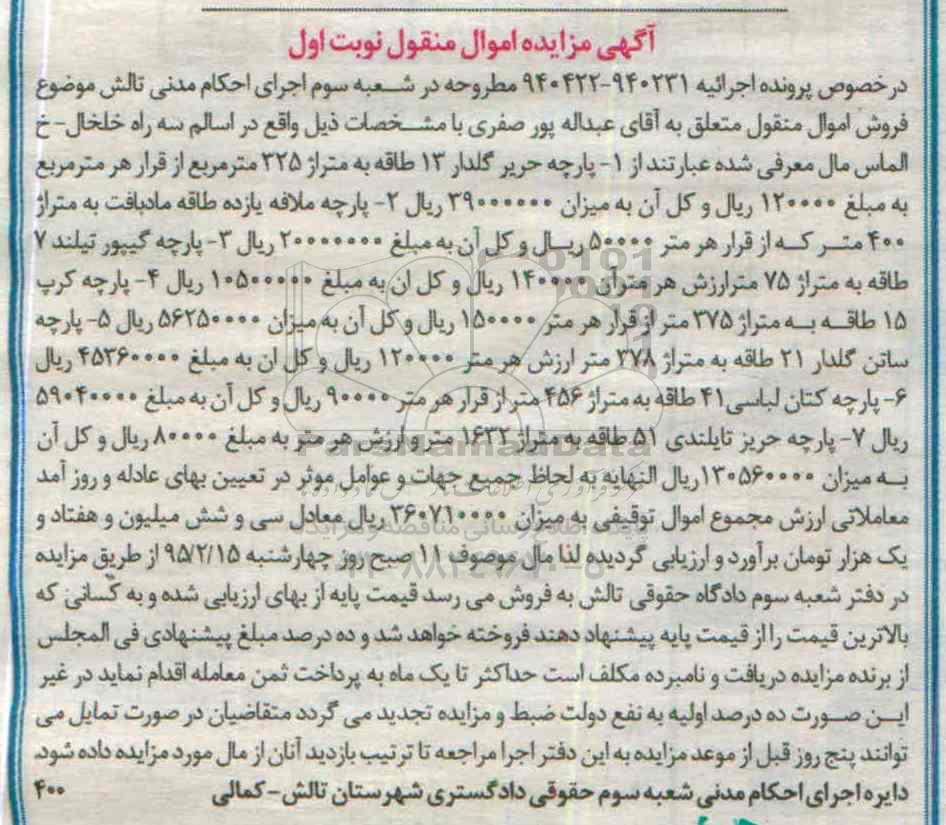 آگهی مزایده اموال منقول نوبت اول
درخصوص پرونده اجرائیه ۹۴۰۲۳۱-۹۴۰۴۲۲ مطروحه در شعبه سوم اجرای احکام مدنی تالش موضوع
فروش اموال منقول متعلق به آقای عبداله پور صفری با مشخصات ذیل واقع در اسالم سه راه خلخال-خ
الماس مال معرفی شده عبارتند از ۱- پارچه حریر گلدار ۱۳ طاقه به متراژ ۳۲۵ مترمربع از قرار هر مترمربع
به مبلغ ۱۲۰۰۰۰ ریال و کل آن به میزان ۳۹۰۰۰۰۰۰ ریال ۲- پارچه ملافه یازده طاقه مادبافت به متراژ
۴۰۰ متر که از قرار هر متر ۵۰۰۰۰ ریال و کل آن به مبلغ ۲۰۰۰۰۰۰۰ ریال ۳- پارچه گیپور تیلند ۷
طاقه به متراژ ۷۵ مترارزش هر مترآن ۱۴۰۰۰۰ ریال و کل ان به مبلغ ۱۰۵۰۰۰۰۰ ریال ۴- پارچه کرپ
۱۵ طاقه به متراژ ۳۷۵ متر از قرار هر متر ۱۵۰۰۰۰ ریال و کل آن به میزان ۵۶۲۵۰۰۰۰ ریال ۵- پارچه
ساتن گلدار ۲۱ طاقه به متراژ ۳۷۸ متر ارزش هر متر ۱۲۰۰۰۰ ریال و کل ان به مبلغ ۴۵۳۶۰۰۰۰ ریال
۶- پارچه کتان لباسی ۴۱ طاقه به متراژ ۴۵۶ متر از قرار هر متر ۹۰۰۰۰ ریال و کل آن به مبلغ ۵۹۰۴۰۰۰۰
ریال ۷- پارچه حریز تایلندی ۵۱ طاقه به متراژ ۱۶۳۲ متر و ارزش هر متر به مبلغ ۸۰۰۰۰ ریال و کل آن
به میزان ۱۳۰۵۶۰۰۰۰ ریال النهایه به لحاظ جمیع جهات و عوامل موثر در تعیین بهای عادله و روز آمد
معاملاتی ارزش مجموع اموال توقیفی به میزان ۳۶۰۷۱۰۰۰۰ ریال معادل سی و شش میلیون و هفتاد و
یک هزار تومان برآورد و ارزیابی گردیده لذا مال موصوف ۱۱ صبح روز چهارشنبه ۹۵/۲/۱۵ از طریق مزایده
در دفتر شعبه سوم دادگاه حقوقی تالش به فروش می رسد قیمت پایه از بهای ارزیابی شده و به کسانی که
بالاترین قیمت را از قیمت پایه پیشنهاد دهند فروخته خواهد شد و ده درصد مبلغ پیشنهادی فی المجلس
از برنده مزایده دریافت و نامبرده مکلف است حداکثر تا یک ماه به پرداخت ثمن معامله اقدام نماید در غیر
این صورت ده درصد اولیه به نفع دولت ضبط و مزایده تجدید می گردد متقاضیان در صورت تمایل می
توانند پنج روز قبل از موعد مزایده به این دفتر اجرا مراجعه تا ترتیب بازدید آنان از مال مورد مزایده داده شود.
دایره اجرای احکام مدنی شعبه سوم حقوقی دادگستری شهرستان تالش-کمالی
۴۰۰
ParsNamadData